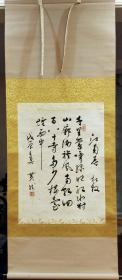 江南春 杜牧
千里鶯啼綠映紅水村
山郭酒旗風南朝四
百八十寺多少樓臺
煙雨中